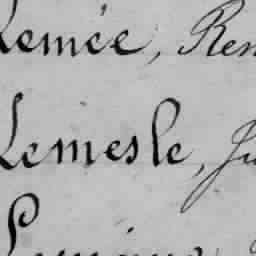 Lemée, Ren
Lemesle, Ju